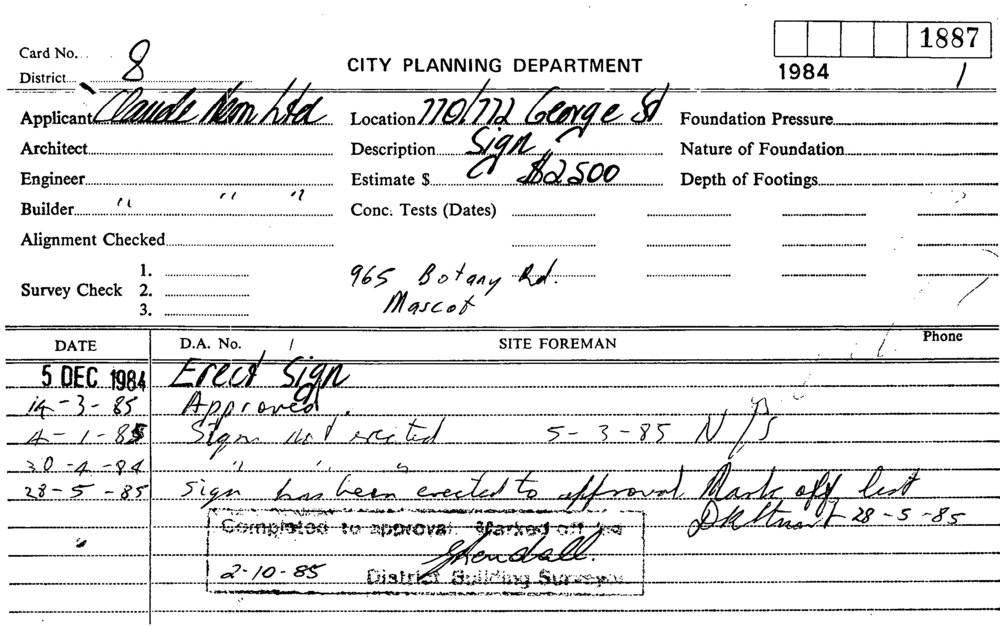 Card No. 8
District
CITY PLANNING DEPARTMENT
1887
1984 1
Applicant Claude Neon Ltd
Location 770/772 George St
Foundation Pressure
Architect
Description Sign
Nature of Foundation
Engineer
Estimate $ $2500
Depth of Footings
Builder " " "
Conc. Tests (Dates)
Alignment Checked
Survey Check 1.
2.
3.
965 Botany Rd.
Mascot
DATE D.A. No. SITE FOREMAN Phone
5 DEC 1984 Erect Sign
14-3-85 Approved.
4-1-85 Sign not erected 5-3-85 N/S
30-4-84 " " "
28-5-85 Sign has been erected to approval. Mark off list
28-5-85
Completed to approval. Marked off
2-10-85 District Building Surveyor